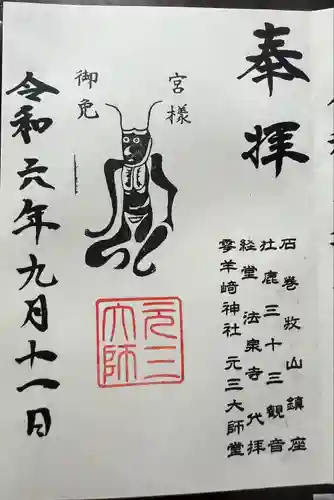 奉拝
石巻牧山鎮座
牡鹿三十三観音
経堂 法泉寺代拝
零羊崎神社 元三大師堂
宮様
御免
元三大師
令和六年九月十一日